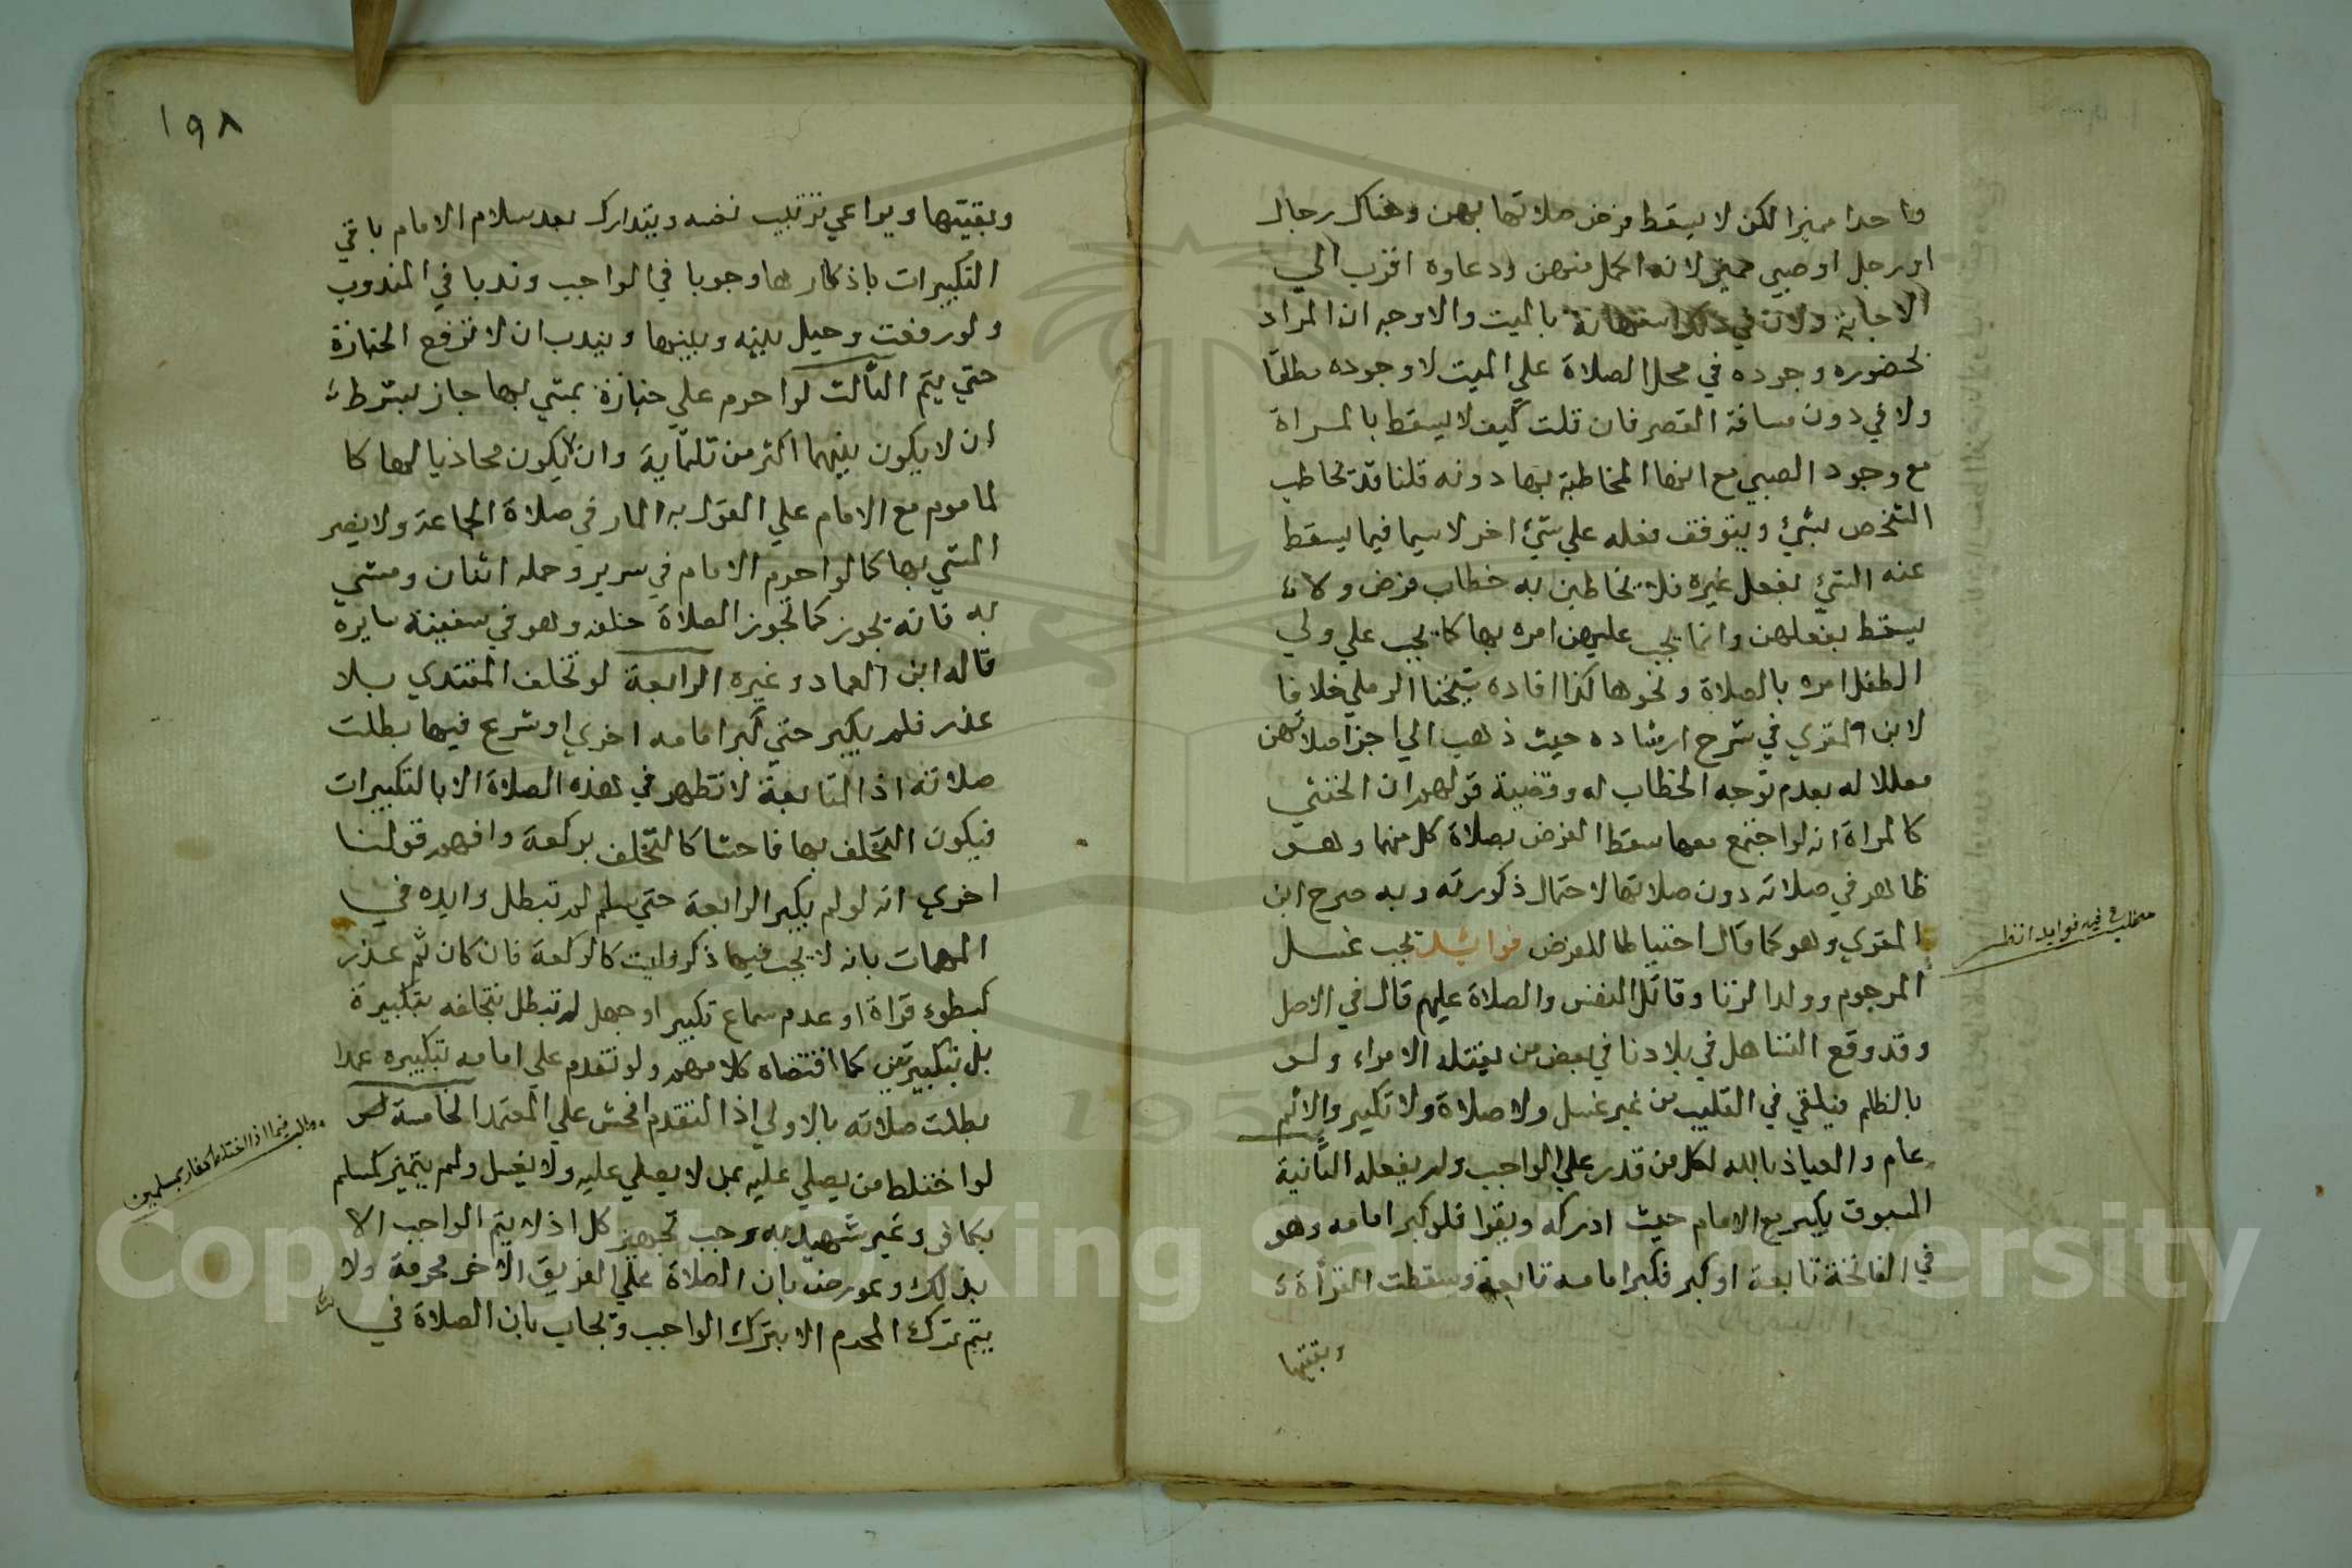 واحدا مميزا لكن لا يسقط فرض صلاتها بهن وهناك رجال
او رجل او صبي مميز لانه اكمل منهن ودعاوه اقرب الي
الاجابة ولان في ذلك استهانة بالميت والاوجه ان المراد
بحضوره وجوده في محل الصلاة علي الميت لا وجوده مطلقا
ولا في دون مسافة القصر فان قلت كيف لا يسقط بالمراة
مع وجود الصبي مع انها المخاطبة بها دونه قلنا قد يخاطب
الشخص بشيء ويتوقف فعله علي شيء اخر لا سيما فيما يسقط
عنه الشيء بفعل غيره فلا يخاطبن به خطاب فرض ولا
يسقط بفعلهن وانما يجب عليهن امره بها كما يجب علي ولي
الطفل امره بالصلاة ونحوها كذا افاده شيخنا الرملي خلافا
لابن المقري في شرح ارشاده حيث ذهب الي اجزا صلاتهن
معللا له بعدم توجه الخطاب له وقضية قولهم ان الخنثي
كالمراة انه لو اجتمع معها سقط الفرض بصلاة كل منهما وهو
ظاهر في صلاته دون صلاتها لاحتمال ذكورته وبه صرح ابن
المقري وهو كما قال احتياطا للفرض فوائد يجب غسل
المرجوم وولد الزنا وقاتل النفس والصلاة عليهم قال في الاصل
وقد وقع التساهل في بلادنا في بعض من يقتله الامراء ولو
بالظلم فيلقي في القليب من غير غسل ولا صلاة ولا تكبير والاثم
عام والعياذ بالله لكل من قدر علي الواجب ولم يفعله الثانية
المسبوق يكبر مع الامام حيث ادركه ويقرا فلو كبر امامه وهو
في الفاتحة تابعه او كبر فكبر امامه تابعه وسقطت القرأة
وبقيتها
مطلب فيه فوايد انظر
١٩٨
وبقيتها ويراعي ترتيب نفسه ويتدارك بعد سلام الامام باقي
التكبيرات باذكارها وجوبا في الواجب وندبا في المندوب
ولو رفعت وحيل بينه وبينها ويندب ان لا ترفع الجنازة
حتي يتم الثالث لو احرم علي جنازة يمشي بها جاز بشرط
ان لا يكون بينهما اكثر من ثلثماية وان يكون محاذيا لها كا
لماموم مع الامام علي القول به المار في صلاة الجماعة ولا يضر
المشي بها كما لو احرم الامام في سرير وحمله اثنان ومشي
به فانه يجوز كما تجوز الصلاة خلفه وهو في سفينة سايره
قاله ابن العماد وغيره الرابعة لو تخلف المقتدي بلا
عذر فلم يكبر حتي كبر امامه اخري او شرع فيها بطلت
صلاته اذ المتابعة لا تظهر في هذه الصلاة الا بالتكبيرات
فيكون التخلف بها فاحشا كالتخلف بركعة وافهم قولنا
اخري انه لو لم يكبر الرابعة حتي سلم لم تبطل وايده في
المهمات بانه لا يجب فيها ذكر فليت كالركعة فان كان ثم عذر
كبطوء قراة او عدم سماع تكبير او جهل لم تبطل بتخلفه بتكبيرة
بل بتكبيرتين كما اقتضاه كلامهم ولو تقدم علي امامه بتكبيره عمدا
بطلت صلاته بالاولي اذ التقدم افحش علي المعتمد الخامسة
لو اختلط من يصلي عليه بمن لا يصلي عليه ولا يغسل ولم يتميز كمسلم
بكافر وغير شهيد به وجب تجهيز كل اذ لا يتم الواجب الا
بذلك وعورض بان الصلاة علي الفريق الاخر محرمة ولا
يتم ترك المحرم الا بترك الواجب ويجاب بان الصلاة في
مطلب فيما اذا اختلط كفار بمسلمين